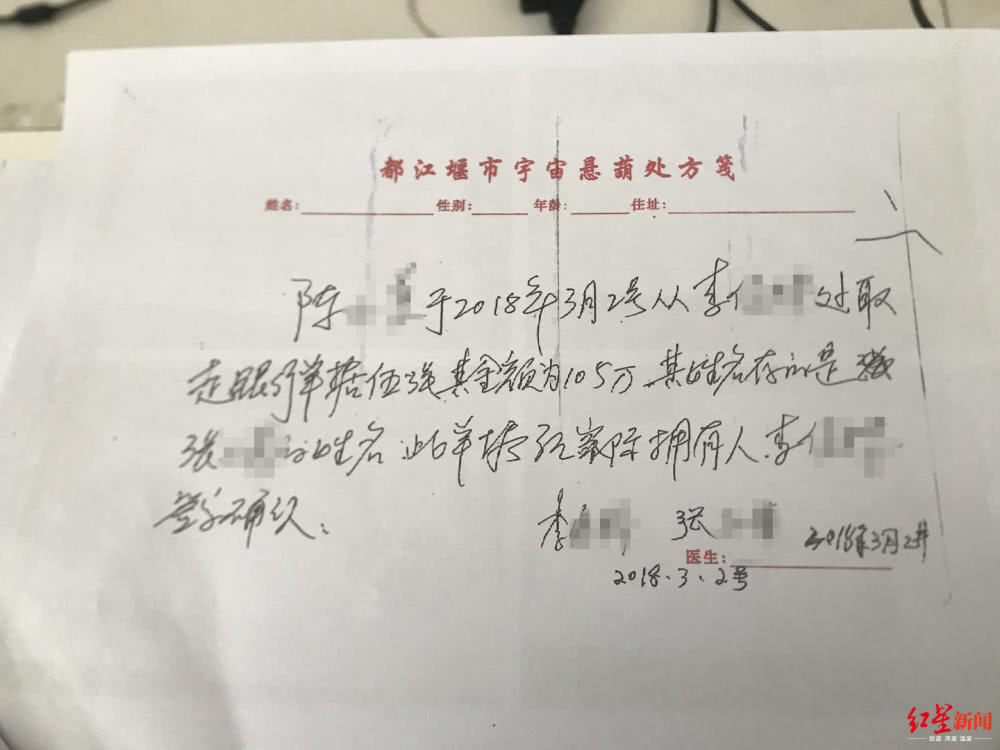 都江堰市宇宙悬葫处方笺
姓名: 性别: 年龄: 住址:
陈 于2018年3月2号从李 处取
走银行单据伍张其金额为105万 其姓名存的是
张 的姓名 此单据经实际拥有人李
签字确认:
李 张 2018年3月2号
医生:
2018.3.2号
红星新闻
锐度 深度 温度